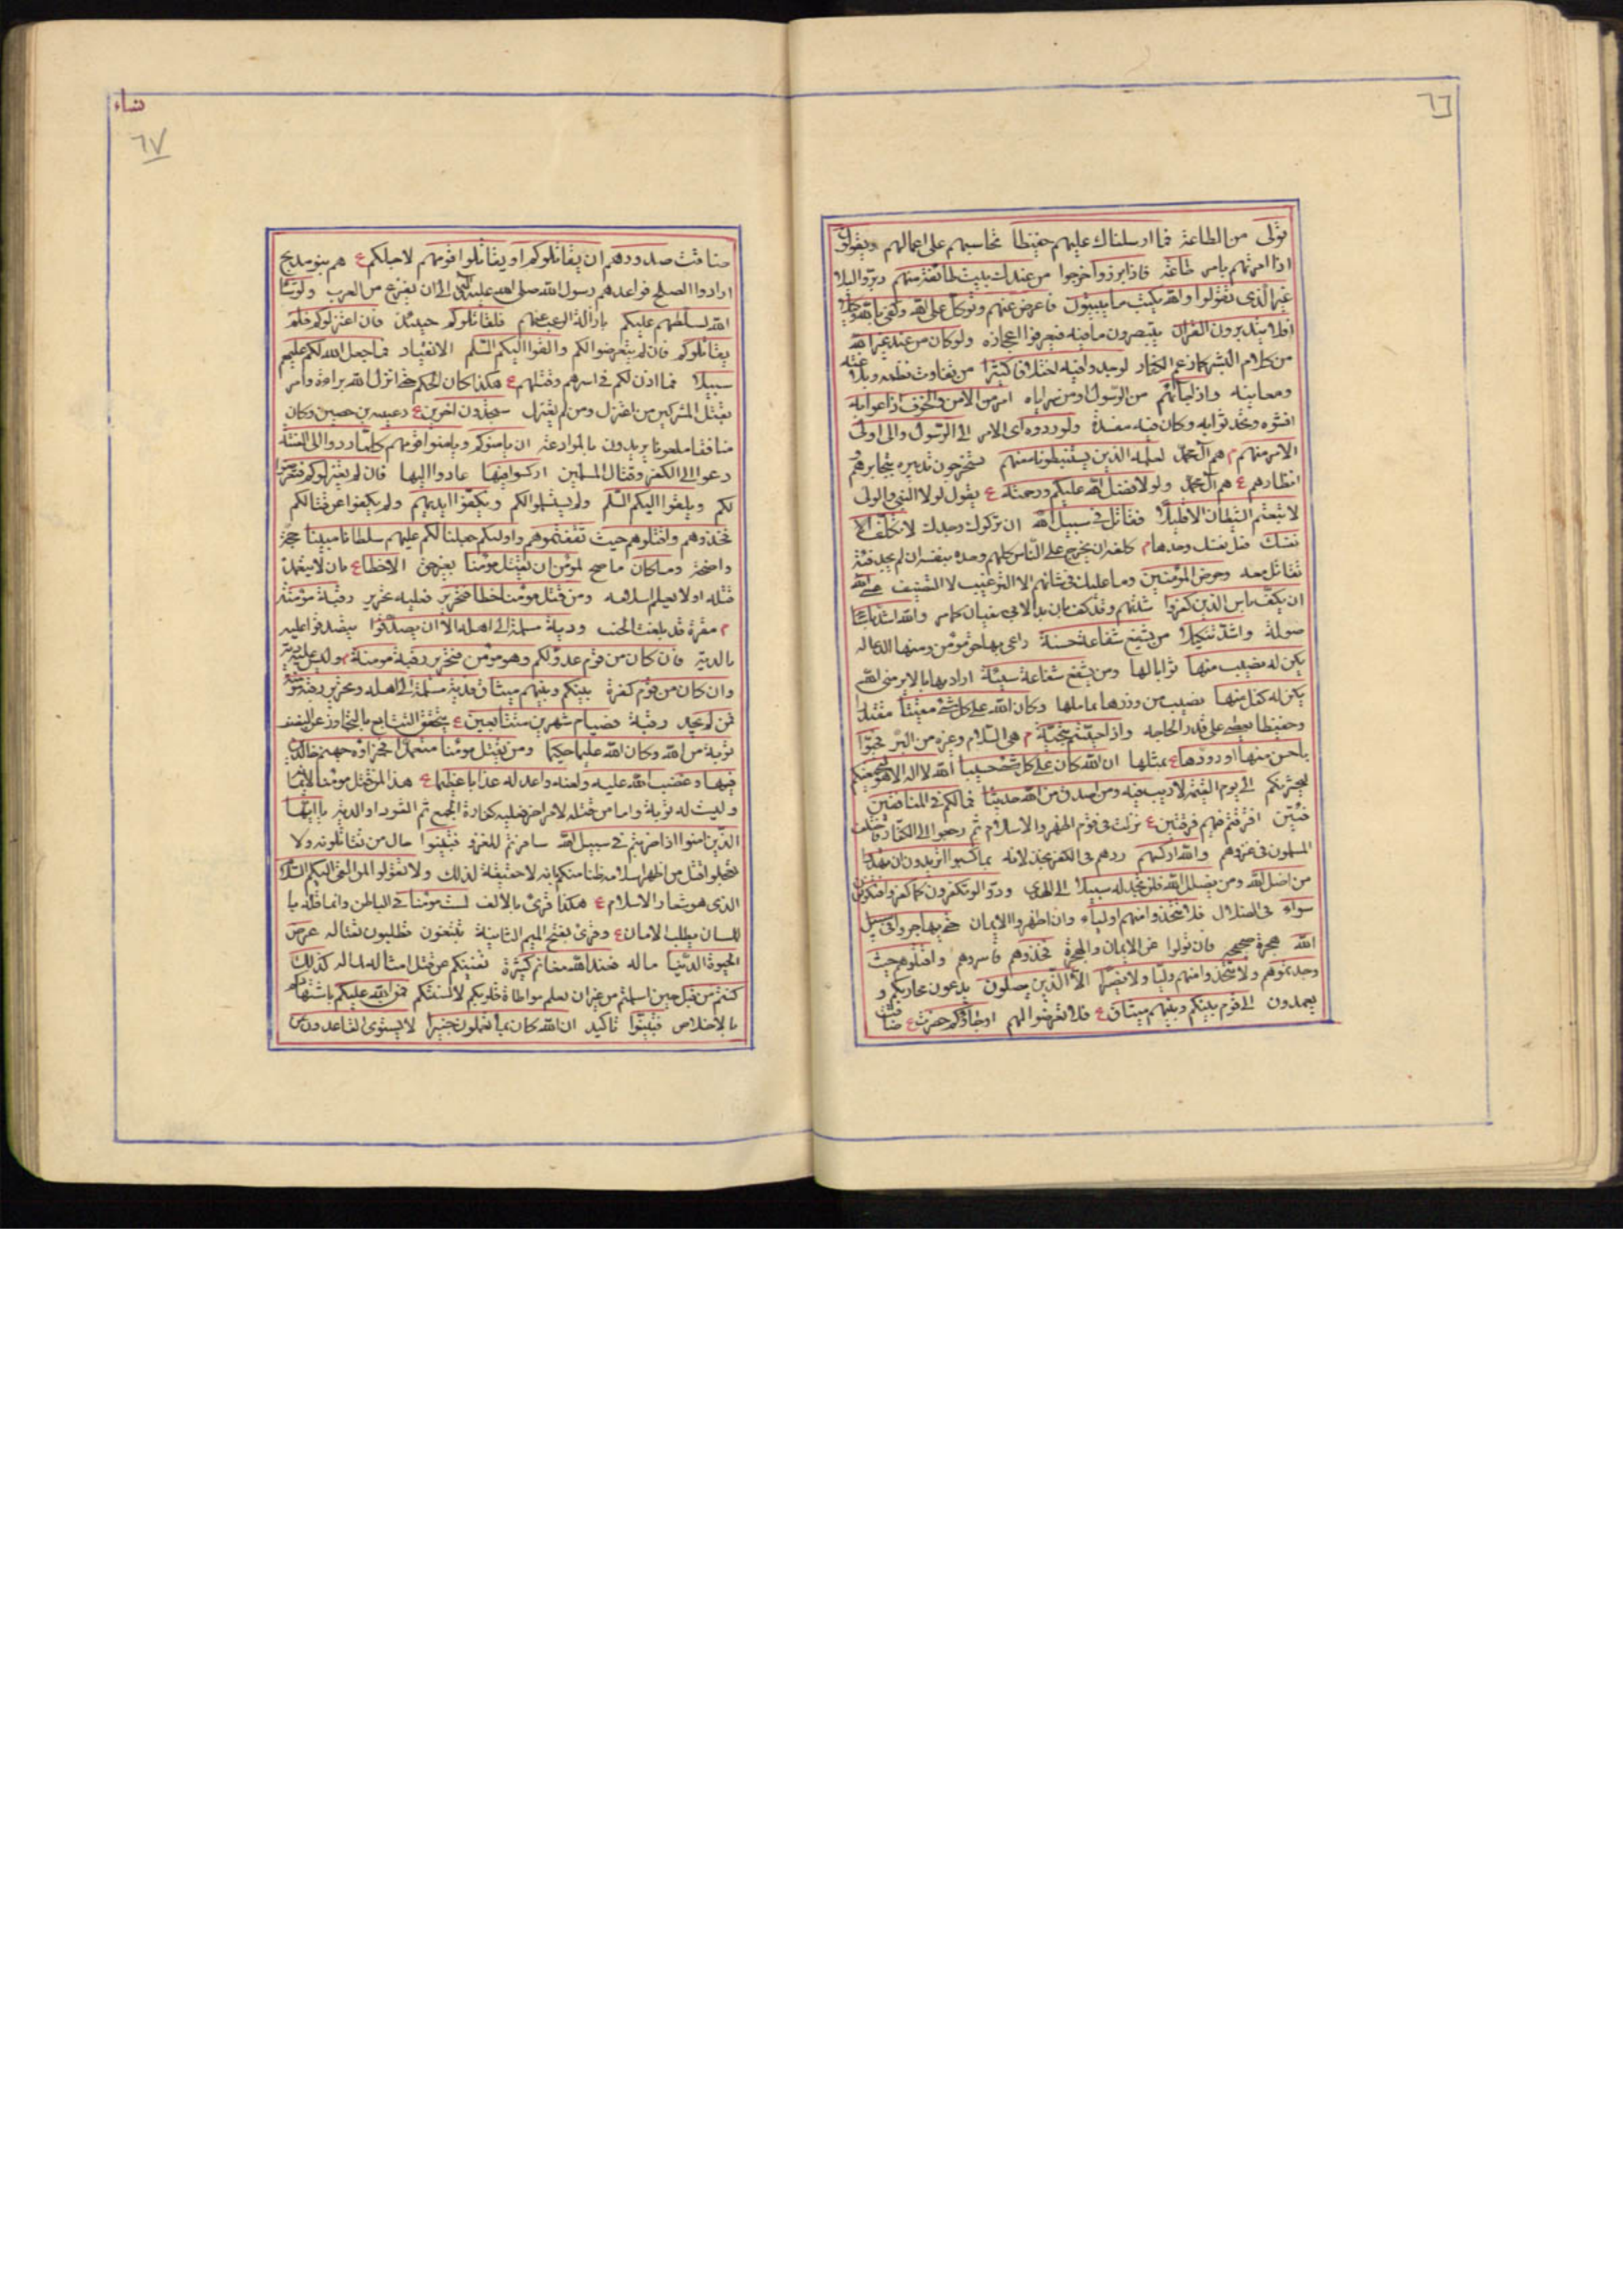 ٦٦
تولى من الطاعة فما ارسلناك عليهم حفيظا تحاسبهم على اعمالهم ويقولون
اذا امرتهم بامر طاعة فاذا برزوا خرجوا من عندك بيت طائفة منهم
غير الذى تقول والله يكتب ما يبيتون فاعرض عنهم وتوكل على الله وكفى بالله وكيلا
افلا يتدبرون القران يتبصرون ما فيه فيعرفوا اعجازه ولو كان من عند غير الله
من كلام البشر كما زعم الكفار لوجدوا فيه اختلافا كثيرا من تفاوت نظمه وبلاغته
ومعانيه واذا جائهم من الرسول او من سراياه امر من الامن او الخوف اذاعوا به
افشوه وتحدثوا به وكان فيه مفسدة ولو ردوه اى الامر الى الرسول والى اولى
الامر منهم م هم آل محمد لعلمه الذين يستنبطونه منهم يستخرجون تدبيره بتجاربهم و
انظارهم ع هم آل محمد ولولا فضل الله عليكم ورحمته ع يقول لولا النبى والولى
لاتبعتم الشيطان الا قليلا فقاتل فى سبيل الله ان تركوك وحدك لا تكلف الا
نفسك فعل نفسك وحدها م كلفه ان يخرج على الناس كلهم وحده بنفسه ان لم يجد فئة
تقاتل معه وحرض المؤمنين وما عليك فى شانهم الا الترغيب لا التعنيف عسى الله
ان يكف باس الذين كفروا شدتهم وقد كف بان بدا لابى سفيان كما مر والله اشد باسا
صولة واشد تنكيلا من يشفع شفاعة حسنة راعى بها حق مؤمن ومنها الدعاء له
يكن له نصيب منها ثوابا لها ومن يشفع شفاعة سيئة اراد بها ما لا يرضى الله
يكن له كفل منها نصيب من وزرها مماثلها وكان الله على كل شئ مقيتا مقتدرا
وحفيظا يعطى على قدر الحاجه واذا حييتم بتحية م هى السلام وغيره من البر فحيوا
باحسن منها او ردوها ع بمثلها ان الله كان على كل شئ حسيبا الله لا اله الا هو ليجمعنكم
ليحشرنكم الى يوم القيمة لا ريب فيه ومن اصدق من الله حديثا فما لكم فى المنافقين
فئتين افترقتم فيهم فرقتين ع نزلت فى قوم اظهروا الاسلام ثم رجعوا الى الكفار فاختلف
المسلمون فى غزوهم والله اركسهم ردهم فى الكفر بخذلانه بما كسبوا اتريدون ان تهدوا
من اضل الله ومن يضلل الله فلن تجد له سبيلا الى الهدى ودوا لو تكفرون كما كفروا فتكونون
سواء فى الضلال فلا تتخذوا منهم اولياء وان اظهروا الايمان حتى يهاجروا فى سبيل
الله هجرة صحيحة فان تولوا عن الايمان والهجرة فخذوهم فأسروهم واقتلوهم حيث
وجدتموهم ولا تتخذوا منهم وليا ولا نصيرا الا الذين يصلون يدعون محاربتكم و
يعمدون الى قوم بينكم وبينهم ميثاق ع فلا تعرضوا لهم او جاؤكم حصرت ع ضاقت
نساء
٦٧
ضاقت صدورهم ان يقاتلوكم او يقاتلوا قومهم لاجلكم ع هم بنو مدلج
ارادوا الصلح فواعدهم رسول الله صلى الله عليه الى ان يفرغ من العرب ولو شاء
الله لسلطهم عليكم بازالة الرعب عنهم فلقاتلوكم حينئذ فان اعتزلوكم فلم
يقاتلوكم فان لم يتعرضوا لكم والقوا اليكم السلم الانقياد فما جعل الله لكم عليهم
سبيلا فما اذن لكم فى اسرهم وقتلهم ع هكذا كان الحكم حتى انزل الله براءة وامر
بقتل المشركين من اعتزل ومن لم يعتزل ستجدون اخرين ع هو عيينة بن حصين وكان
منافقا ملعونا يريدون بالموادعة ان يامنوكم ويامنوا قومهم كلما ردوا الى الفتنة
دعوا الى الكفر وقتال المسلمين اركسوا فيها عادوا اليها فان لم يعتزلوكم فيتعرضوا
لكم ويلقوا اليكم السلم ولم يستسلموا لكم ويكفوا ايديهم ولم يكفوا عن قتالكم
فخذوهم واقتلوهم حيث ثقفتموهم واولئكم جعلنا لكم عليهم سلطانا مبينا حجة
واضحة وما كان ما صح لمؤمن ان يقتل مؤمنا بغير حق الا خطا ع بان لا يتعمد
قتله او لا يعلم اسلامه ومن قتل مؤمنا خطا فتحرير فعليه تحرير رقبة مؤمنة
م مقرة قد بلغت الحنث ودية مسلمة الى اهله الا ان يصدقوا يتصدقوا عليه
بالدية فان كان من قوم عدو لكم وهو مؤمن فتحرير رقبة مؤمنة م وليس عليه دية
وان كان من قوم كفرة بينكم وبينهم ميثاق فدية مسلمة الى اهله وتحرير رقبة مؤمنة
فمن لم يجد رقبة فصيام شهرين متتابعين ع يتحقق التتابع بالتجاوز عن النصف
توبة من الله وكان الله عليما حكيما ومن يقتل مؤمنا متعمدا فجزاؤه جهنم خالدا
فيها وغضب الله عليه ولعنه واعد له عذابا عظيما ع هذا لمن قتل مؤمنا لايمانه
وليست له توبة واما من قتله لامر اخر فعليه كفارة الجمع ثم القود او الدية يا ايها
الذين امنوا اذا ضربتم فى سبيل الله سافرتم للغزو فتبينوا حال من تقاتلونه ولا
تعجلوا قتل من اظهر اسلامه ظنا منكم بانه لا حقيقة لذلك ولا تقولوا لمن القى اليكم السلام
الذى هو شعار الاسلام ع هكذا قرئ بالالف لست مؤمنا فى الباطن وانما قلته با
للسان بطلب الامان ع وقرئ بفتح الميم الثانية تبتغون تطلبون بقتاله عرض
الحيوة الدنيا ماله فعند الله مغانم كثيرة تغنيكم عن قتل امثاله لماله كذلك
كنتم من قبل حين اسلمتم من غير ان يعلم مواطاة قلوبكم لالسنتكم فمن الله عليكم
بالاخلاص فتبينوا تاكيد ان الله كان بما تعملون خبيرا لا يستوى القاعدون من